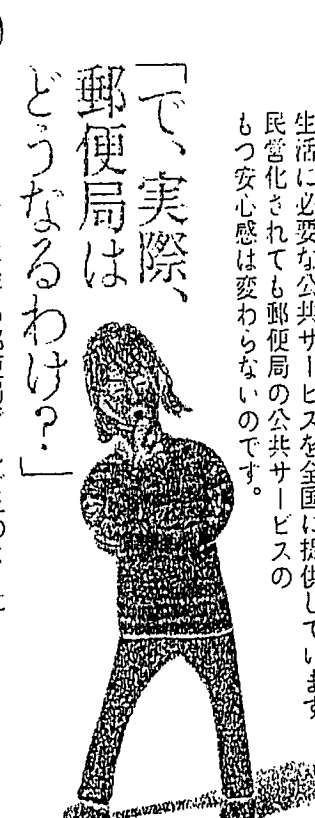 生活に必要な公共サービスを全国に提供しています
民営化されても郵便局の公共サービスの
もつ安心感は変わらないのです。
「で、実際、
郵便局は
どうなるわけ？」